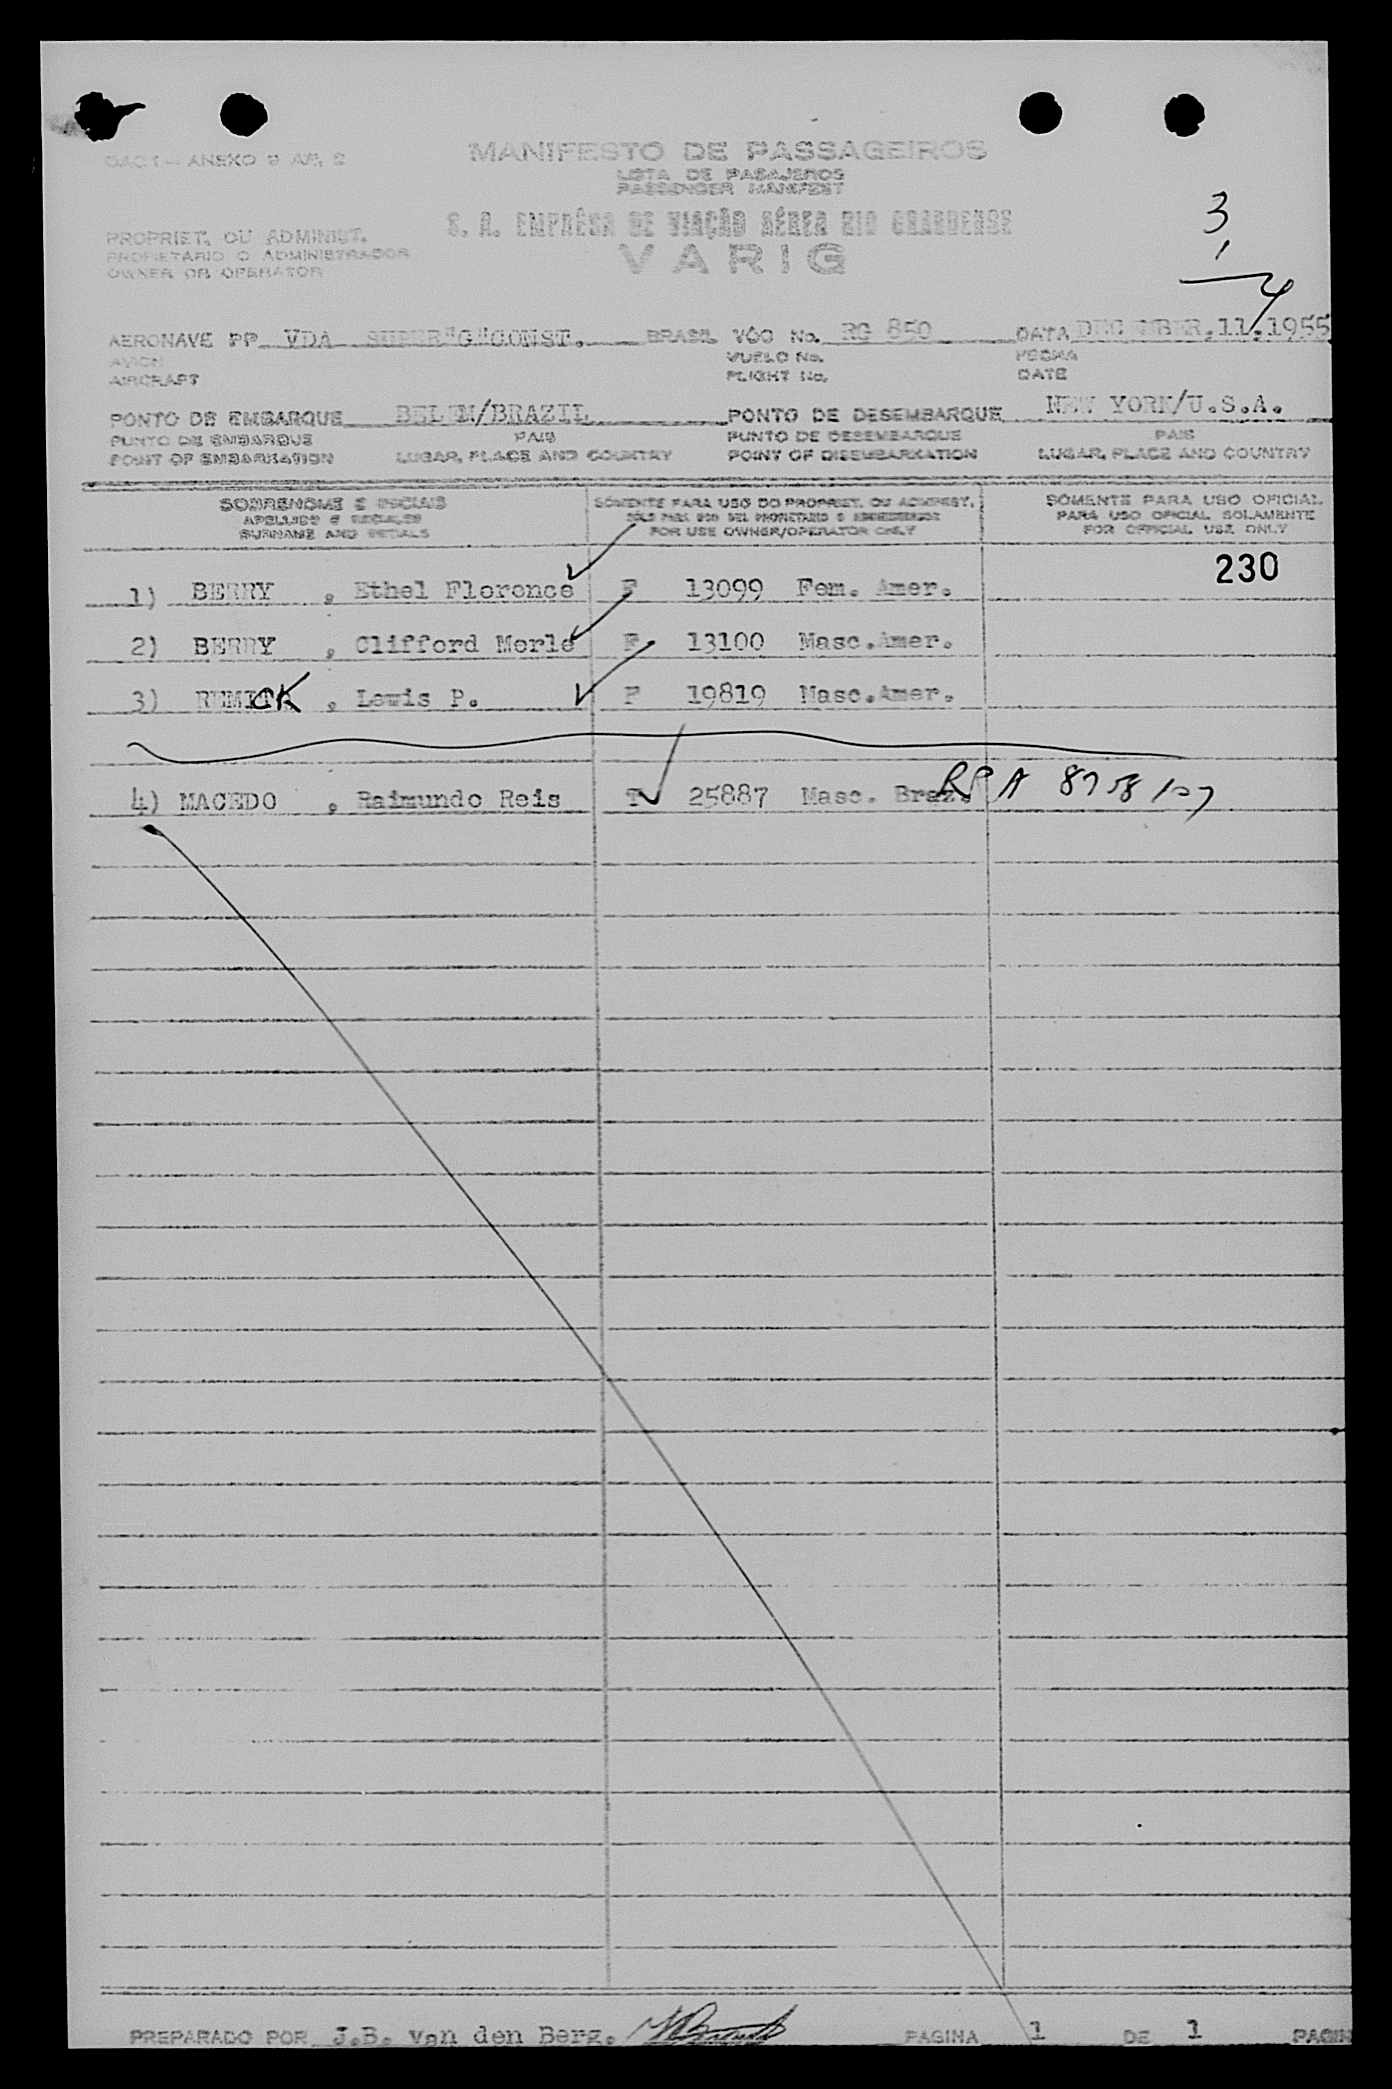 DAC 1 - ANEXO 9 AP. 2
MANIFESTO DE PASSAGEIROS
LISTA DE PASAJEROS
PASSENGER MANIFEST
3
1
4
S. A. EMPRÊSA DE VIAÇÃO AÉREA RIO GRANDENSE
VARIG
PROPRIET. OU ADMINIST.
PROPIETARIO O ADMINISTRADOR
OWNER OR OPERATOR
AERONAVE PP VDA SUPER"G"CONST. BRASIL VÔO No. RG 850 DATA DECEMBER.11.1955
AVION VUELO No. FECHA
AIRCRAFT FLIGHT No. DATE
PONTO DE EMBARQUE BELEM/BRAZIL PONTO DE DESEMBARQUE NEW YORK/U.S.A.
PUNTO DE EMBARQUE PAIS PUNTO DE DESEMBARQUE PAIS
POINT OF EMBARKATION LUGAR, PLACE AND COUNTRY POINT OF DISEMBARKATION LUGAR, PLACE AND COUNTRY
SOBRENOME E INICIAIS SÓMENTE PARA USO DO PROPRIET. OU ADMINIST. SÓMENTE PARA USO OFICIAL
APELLIDO E INICIALES SÓLO PARA USO DEL PROPIETARIO O ADMINISTRADOR PARA USO OFICIAL SOLAMENTE
SURNAME AND INITIALS FOR USE OWNER/OPERATOR ONLY FOR OFFICIAL USE ONLY
230
1) BERRY , Ethel Florence F 13099 Fem. Amer.
2) BERRY , Clifford Merle F 13100 Masc.Amer.
3) REMICK , Lewis P. F 19819 Masc.Amer.
4) MACEDO , Raimundo Reis T 25887 Masc. Braz. A 8758
PREPARADO POR J.B. van den Berg. PAGINA 1 DE 1 PAGIN